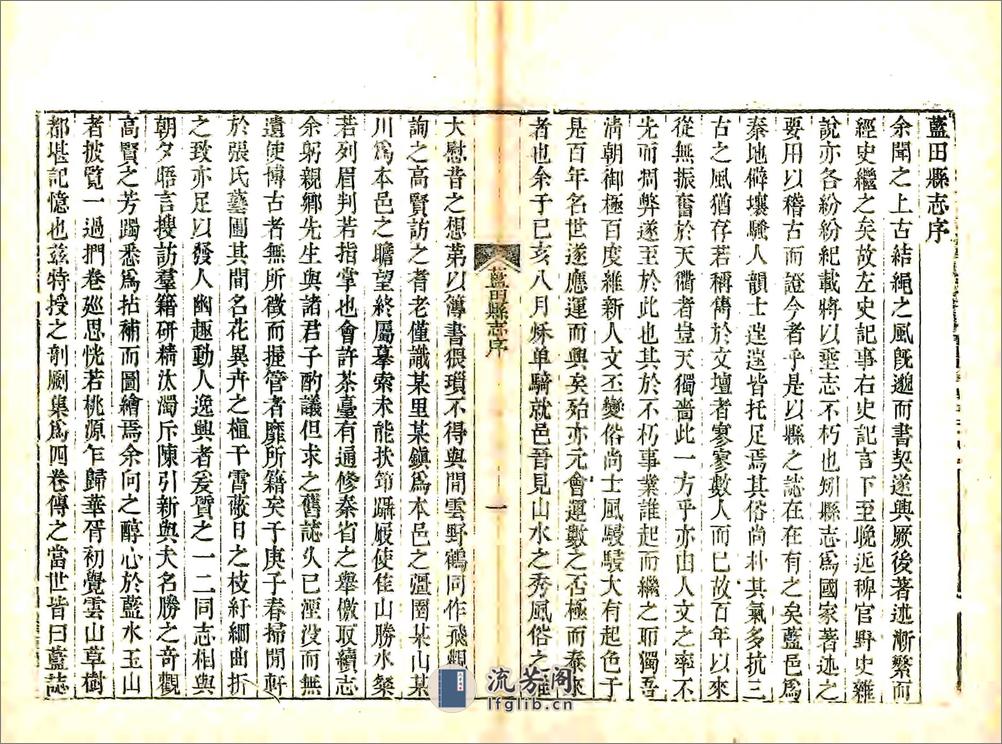 藍田縣志序
余聞之上古結繩之風旣邈而書契遂興厥後著述漸繁而
經史繼之矣故左史記事右史記言下至晚近稗官野史雜
說亦各紛紛紀載將以垂志不朽也矧縣志為國家著述之
要用以稽古而證今者乎是以縣之誌在在有之矣藍邑為
秦地僻壤騷人韻士遥遥皆托足焉其俗尚朴其氣多抗三
古之風猶存若稱儁於文壇者寥寥數人而已故百年以來
從無振奮於天衢者豈天獨嗇此一方乎亦由人文之率不
先而凋弊遂至於此也其於不朽事業誰起而繼之耶獨吾
淸朝御極百度維新人文丕變俗尚士風駸駸大有起色于
是百年名世遂應運而興矣殆亦元會運數之否極而泰來
者也余于己亥八月秌单騎就邑吾見山水之秀風俗之雄
藍田縣志序
一
大慰昔之想第以簿書猥瑣不得與閒雲野鶴同作飛觀
詢之高賢訪之耆老僅識某里某鎮為本邑之彊圉某山某
川為本邑之瞻望終屬摹索未能扶筇躡屐使佳山勝水燦
若列眉判若指掌也會許茶臺有通修秦省之舉儌取續志
余躬親鄉先生與諸君子酌議但求之舊誌久已湮没而無
遺使博古者無所徵而握管者靡所籍矣于庚子春掃閒軒
於張氏藝圃其間名花異卉之植干霄蔽日之枝紆細曲折
之致亦足以發人幽趣動人逸興者爰質之一二同志相與
朝夕晤言搜訪羣籍硏精汰濁斥陳引新與夫名勝之奇觀
高賢之芳躅悉為拈補而圖繪焉余向之醇心於藍水玉山
者披覽一過捫卷廵思恍若桃源乍歸華胥初覺雲山草樹
都堪記憶也兹特授之剞劂集為四卷傳之當世皆曰藍誌
流芳阁
lfglib.cn